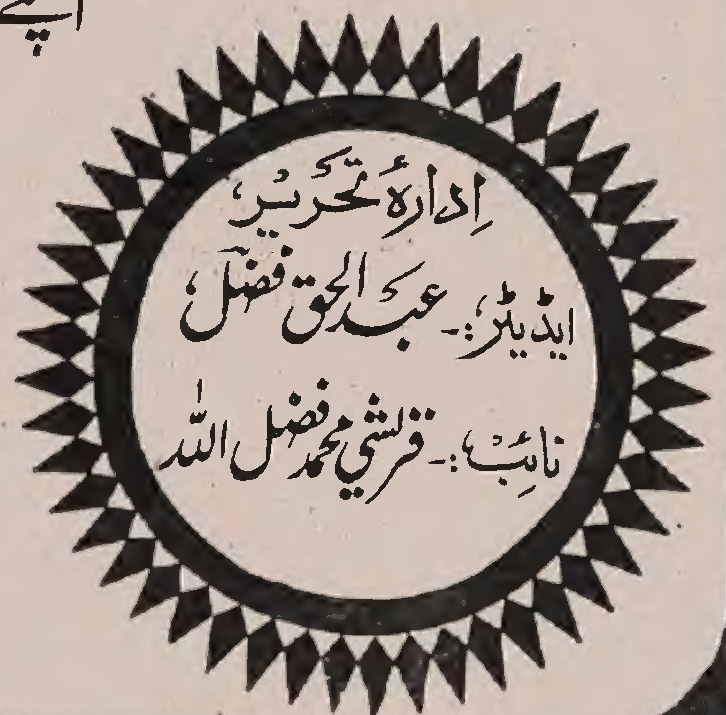 اپنے
اِدارهٔ تحریر
ایڈیٹر:۔ عبدالحق فضل
نائب:۔ قریشی محمد فضل اللہ